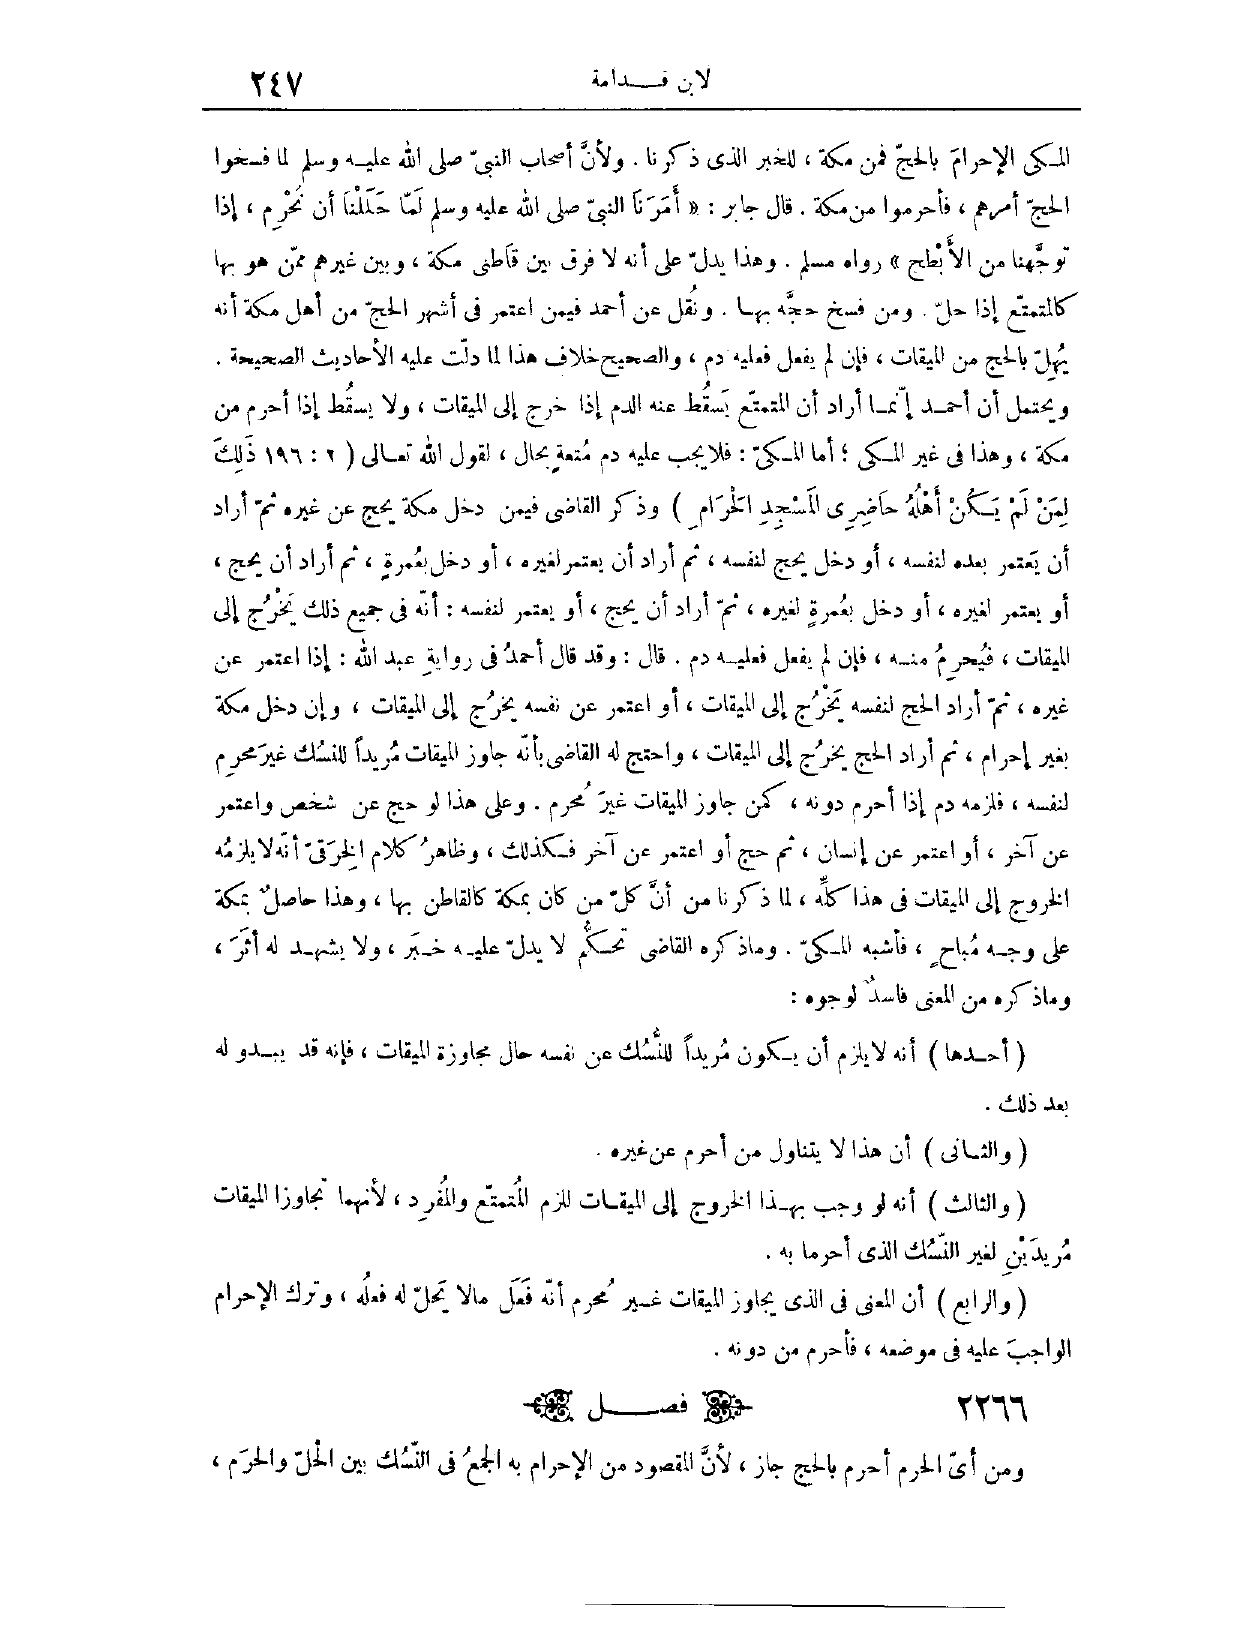 لابن قــدامة
٢٤٧
المـكى الإحرامَ بالحجّ فمن مكة ، للخبر الذى ذكرنا . ولأنَّ أصحاب النبىّ صلى الله عليـه وسلم لما فسخوا
الحجّ أمرهم ، فأحرموا من مكة . قال جابر : « أَمَرَنَا النبىّ صلى الله عليه وسلم لَمّا حَلَلْنَا أن نُحْرِم ، إذا
توجَّهنا من الأَبْطح » رواه مسلم . وهذا يدلّ على أنه لا فرق بين قاَطنى مكة ، وبين غيرهم ممّن هو بها
كالمتمتّع إذا حلّ . ومن فسخ حجَّه بهـا . ونُقل عن أحمد فيمن اعتمر فى أشهر الحجّ من أهل مكة أنه
يُهِلّ بالحج من الميقات ، فإن لم يفعل فعليه دم ، والصحيح خلاف هذا لما دلّت عليه الأحاديث الصحيحة .
ويحتمل أن أحمـد إنّمـا أراد أن المتمتّع يَسقُط عنه الدم إذا خرج إلى الميقات ، ولا يسقُط إذا أحرم من
مكة ، وهذا فى غير المـكى ؛ أما المـكىّ : فلا يجب عليه دم مُتعةٍ بحال ، لقول الله تعـالى ( ٢ : ١٩٦ ذَلِكَ
لِمَنْ لَمْ يَـكُنْ أَهْلُهُ حَاضِرِى المَسْجِدِ الحَرَامِ ) وذكر القاضى فيمن دخل مكة يحج عن غيره ثمّ أراد
أن يَعتمر بعده لنفسه ، أو دخل يحج لنفسه ، ثم أراد أن يعتمر لغيره ، أو دخل بعُمرةٍ ، ثم أراد أن يحج ،
أو يعتمر لغيره ، أو دخل بعُمرةٍ لغيره ، ثمّ أراد أن يحج ، أو يعتمر لنفسه : أنّه فى جميع ذلك يَخْرُج إلى
الميقات ، فيُحرمُ منـه ، فإن لم يفعل فعليـه دم . قال : وقد قال أحمدُ فى روايةِ عبد الله : إذا اعتمر عن
غيره ، ثمّ أراد الحج لنفسه يَخْرُج إلى الميقات ، أو اعتمر عن نفسه يخرُج إلى الميقات ، وإن دخل مكة
بغير إحرام ، ثم أراد الحج يخرُج إلى الميقات ، واحتج له القاضى بأنّه جاوز الميقات مُريداً للنسُك غيرَ محرمٍ
لنفسه ، فلزمه دم إذا أحرم دونه ، كمن جاوز الميقات غيرَ مُحرم . وعلى هذا لو حج عن شخص واعتمر
عن آخر ، أو اعتمر عن إنسان ، ثم حج أو اعتمر عن آخر فـكذلك ، وظاهرُ كلام الخِرَقىّ أنّه لا يلزمُه
الخروج إلى الميقات فى هذا كلِّه ، لما ذكرنا من أنَّ كلّ من كان بمكة كالقاطن بها ، وهذا حاصلٌ بمكة
على وجـه مُباحٍ ، فأشبه المـكىّ . وماذكره القاضى تحـكُّم لا يدلّ عليـه خـبَر ، ولا يشهـد له أثَرَ ،
وماذكره من المعنى فاسدٌ لوجوه :
( أحـدها ) أنه لا يلزم أن يـكون مُريداً للنُّسُك عن نفسه حال مجاوزة الميقات ، فإنه قد يبـدو له
بعد ذلك .
( والثـانى ) أن هذا لا يتناول من أحرم عن غيره .
( والثالث ) أنه لو وجب بهـذا الخروج إلى الميقـات للزم المُتمتّع والمُفرِد ، لأنهما تجاوزا الميقات
مُريدَيْنِ لغير النّسُك الذى أحرما به .
( والرابع ) أن المعنى فى الذى يجاوز الميقات غـير مُحرم أنّه فَعَلَ مالا يَحلّ له فعلُه ، وترك الإحرام
الواجبَ عليه فى موضعه ، فأحرم من دونه .
٢٢٦٦ فصــل
ومن أىّ الحرم أحرم بالحج جاز ، لأنَّ المقصود من الإحرام به الجمعُ فى النّسُك بين الحِلّ والحَرَم ،